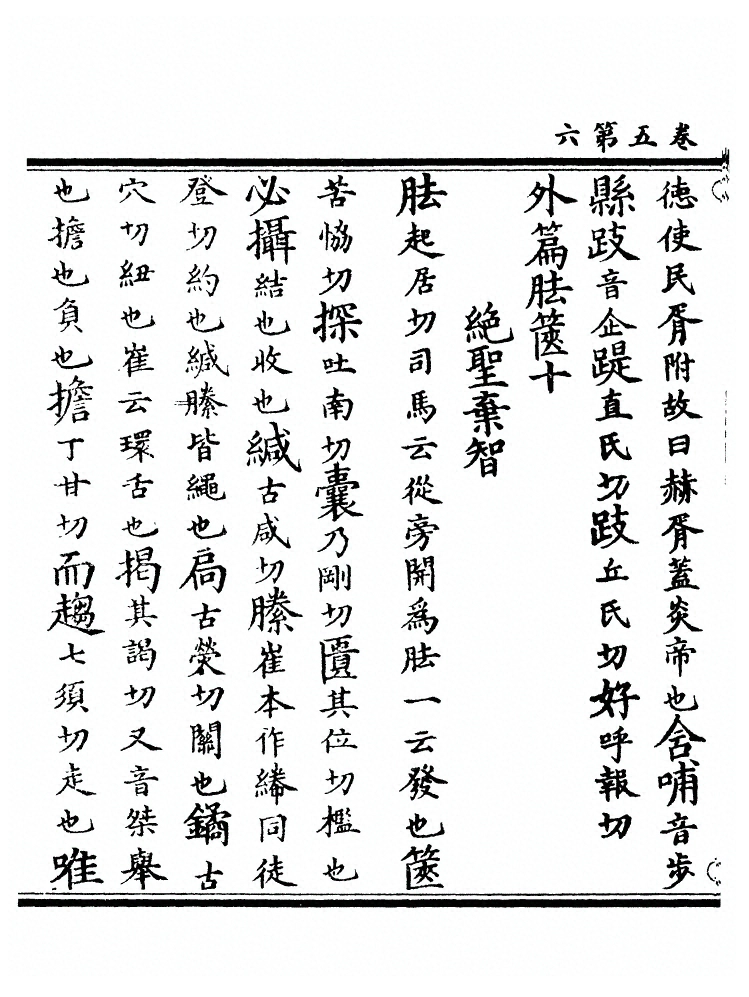 卷五第六
德使民胥附故曰赫胥蓋炎帝也含哺音步
縣跂音企踶直氏切跂丘氏切好呼報切
外篇胠篋十
絶聖棄智
胠起居切司馬云從旁開為胠一云發也篋
苦恊切探吐南切囊乃剛切匱其位切檻也
必攝結也收也緘古咸切縢崔本作䋦同徒
登切約也緘縢皆繩也扃古熒切關也鐍古
穴切紐也崔云環舌也揭其謁切又音桀舉
也擔也負也擔丁甘切而趨七須切走也唯